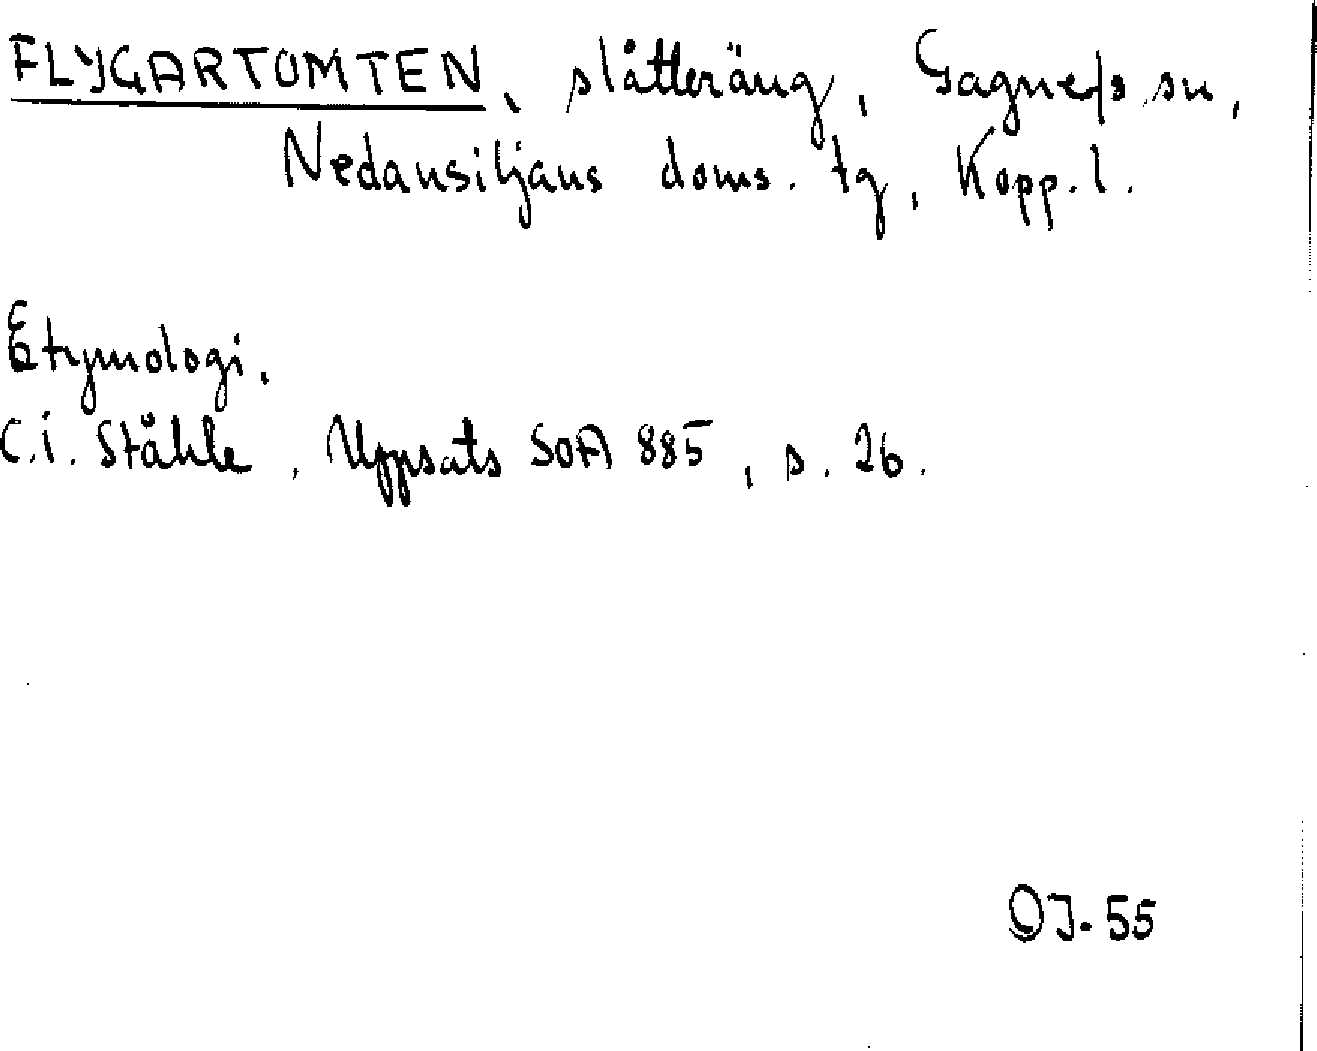 FLYGARTOMTEN, slåtteräng, Gagnefs sn,
Nedansiljans doms. tg, Kopp. l.
Etymologi.
C.I. Ståhle, Uppsats SOA 885, s. 26.
OJ-55